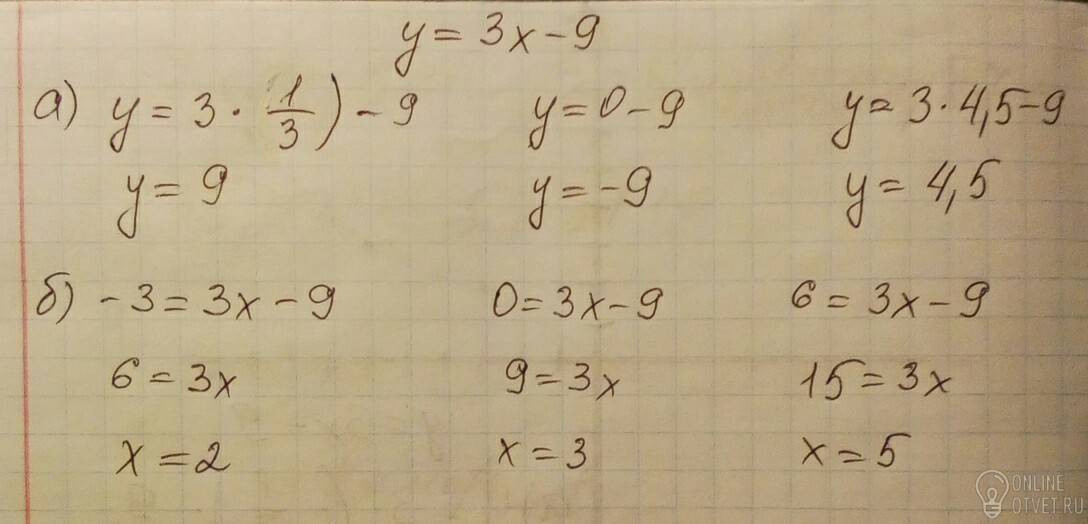 y = 3x - 9
а) y = 3 · 1/3) - 9 y = 0 - 9 y = 3 · 4,5 - 9
y = 9 y = -9 y = 4,5
б) -3 = 3x - 9 0 = 3x - 9 6 = 3x - 9
6 = 3x 9 = 3x 15 = 3x
x = 2 x = 3 x = 5
ONLINE
OTVET.RU